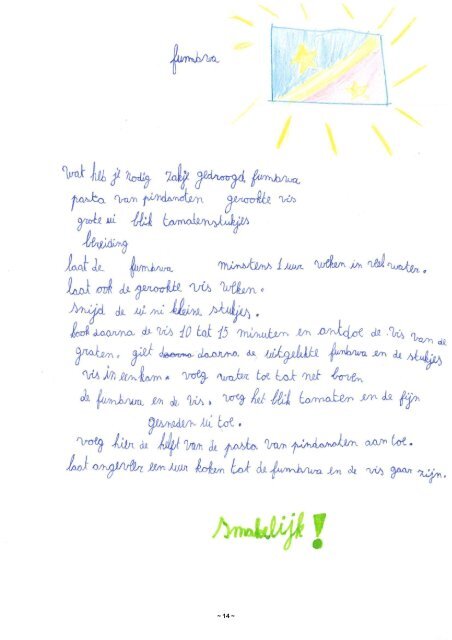 fumbwa
wat heb je nodig zakje gedroogd fumbwa
pasta van pindanoten gerookte vis
grote ui blik tomatenstukjes
bereiding
laat de fumbwa minstens 1 uur weken in veel water.
laat ook de gerookte vis weken.
snijd de ui ni kleine stukjes.
kook daarna de vis 10 tot 15 minuten en ontdoe de vis van de
graten. giet daarna daarna de uitgelekte fumbwa en de stukjes
vis in een kom. voeg water toe tot net boven
de fumbwa en de vis. voeg het blik tomaten en de fijn
gesneden ui toe.
voeg hier de helft van de pasta van pindanoten aan toe.
laat ongeveer een uur koken tot de fumbwa en de vis gaar zijn.
Smakelijk!
~ 14 ~